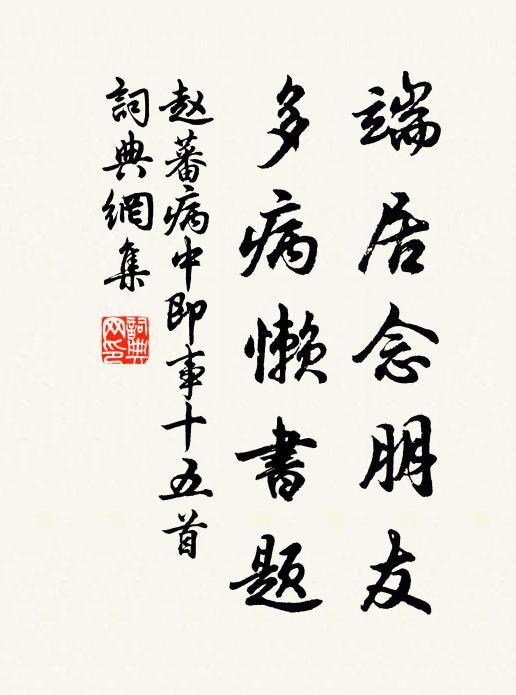 端居念朋友
多病懒書题
赵蕃病中即事十五首
詞典網集
詞典网印